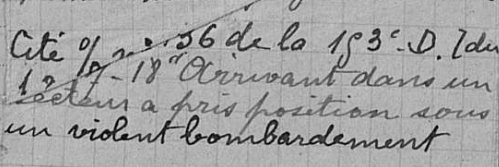 Cité O/ n° 56 de la 153e D.I du
1 - 7 - 18 "Arrivant dans un
secteur a pris position sous
un violent bombardement